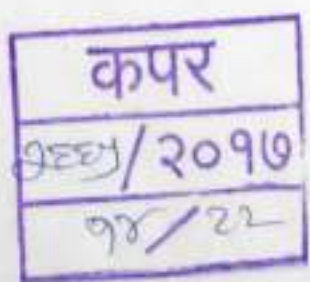 कपर
१६६५/२०१७
१४/२२